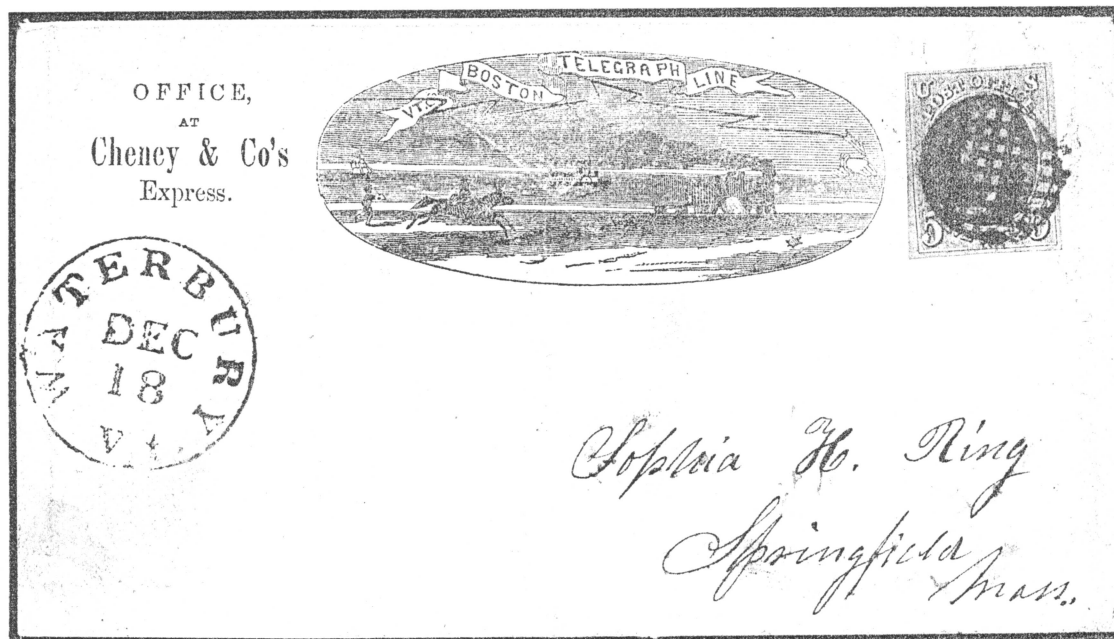 OFFICE,
AT
Cheney & Co's
Express.
VT. & BOSTON TELEGRAPH LINE
U S
POST OFFICE
5
WATERBURY
DEC
18
Sophia H. Ring
Springfield
Mass.